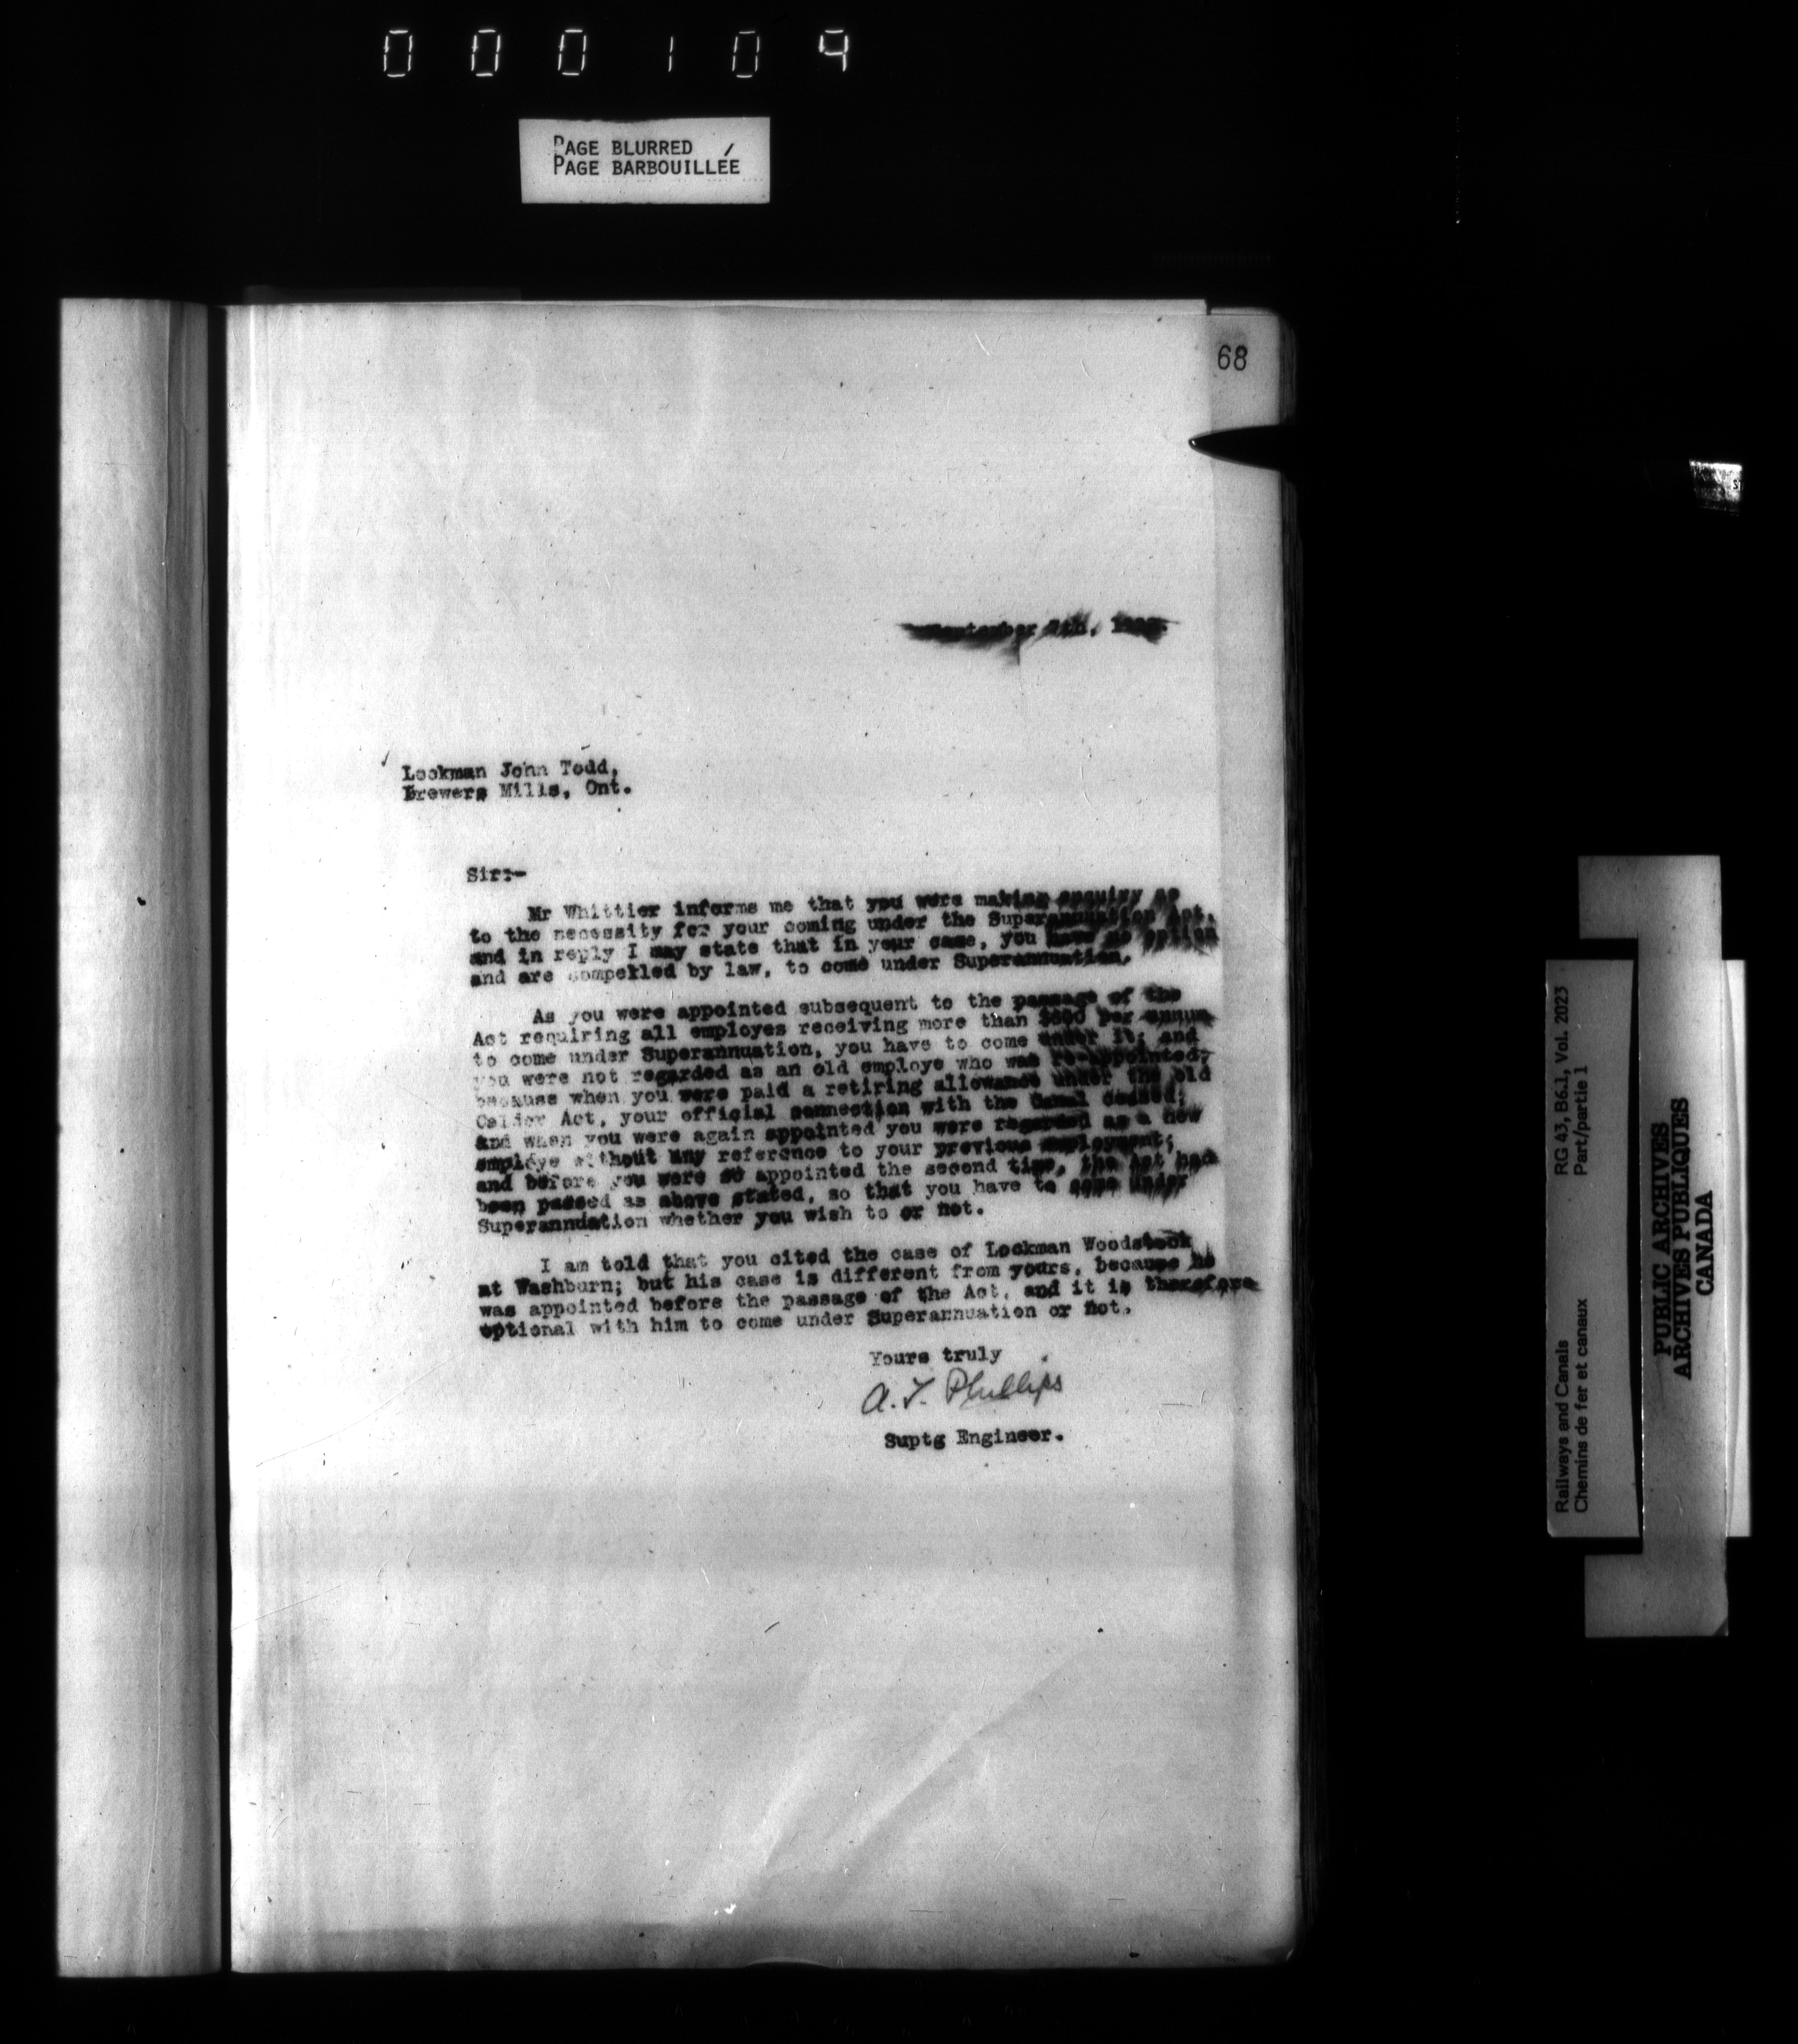 000109
PAGE BLURRED
PAGE BARBOUILLÉE
68
September
Lockman John Todd,
Brewers Mills, Ont.
Sir:-
Mr Whittier informs me that you were making enquiry as
to the necessity for your coming under the Superannuation Act,
and in reply I may state that in your case, you have no option
and are compelled by law, to come under Superannuation.
As you were appointed subsequent to the passage of the
Act requiring all employes receiving more than per annum
to come under Superannuation, you have to come under it; and
you were not regarded as an old employe who was re-appointed;
because when you were paid a retiring allowance under the old
Calder Act, your official connection with the Canal ceased;
and when you were again appointed you were regarded as a new
employe without any reference to your previous employment;
and before you were so appointed the second time, the Act had
been passed as above stated, so that you have to come under
Superannuation whether you wish to or not.
I am told that you cited the case of Lockman Woodstock
at Washburn; but his case is different from yours, because he
was appointed before the passage of the Act, and it is therefore
optional with him to come under Superannuation or not.
Yours truly
A. T. Phillips
Suptg Engineer.
Railways and Canals RG 43, B6.1, Vol. 2023
Chemins de fer et canaux Part/partie 1
PUBLIC ARCHIVES
ARCHIVES PUBLIQUES
CANADA